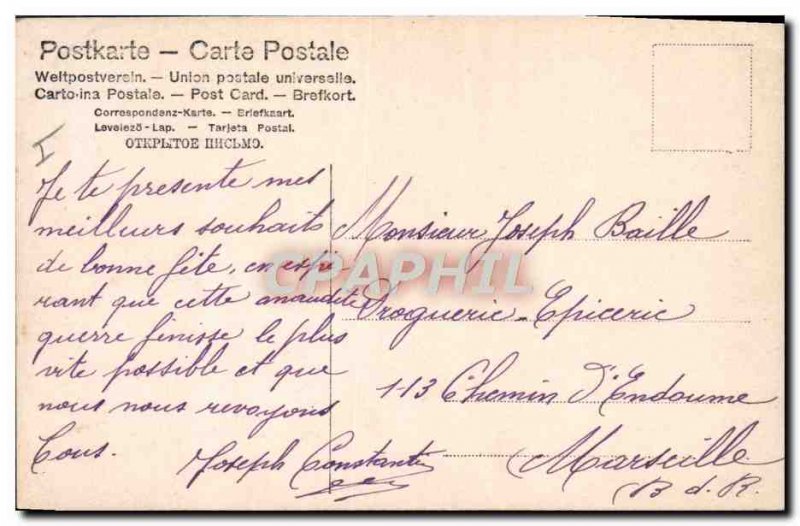 Postkarte — Carte Postale
Weltpostverein. — Union postale universelle.
Carto-ina Postale. — Post Card. — Brefkort.
Correspondenz-Karte. — Briefkaart.
Levelező-Lap. — Tarjeta Postal.
ОТКРЫТОЕ ПИСЬМО.
I
Je te presente mes
meilleurs souhaits
de bonne fête, en espé
rant que cette maudite
guerre finisse le plus
vite possible et que
nous nous revoyons
tous.
Joseph Constantin
Monsieur Joseph Baille
Droguerie-Epicerie
113 Chemin d'Endoume
Marseille
B d. R.
CPAPHIL